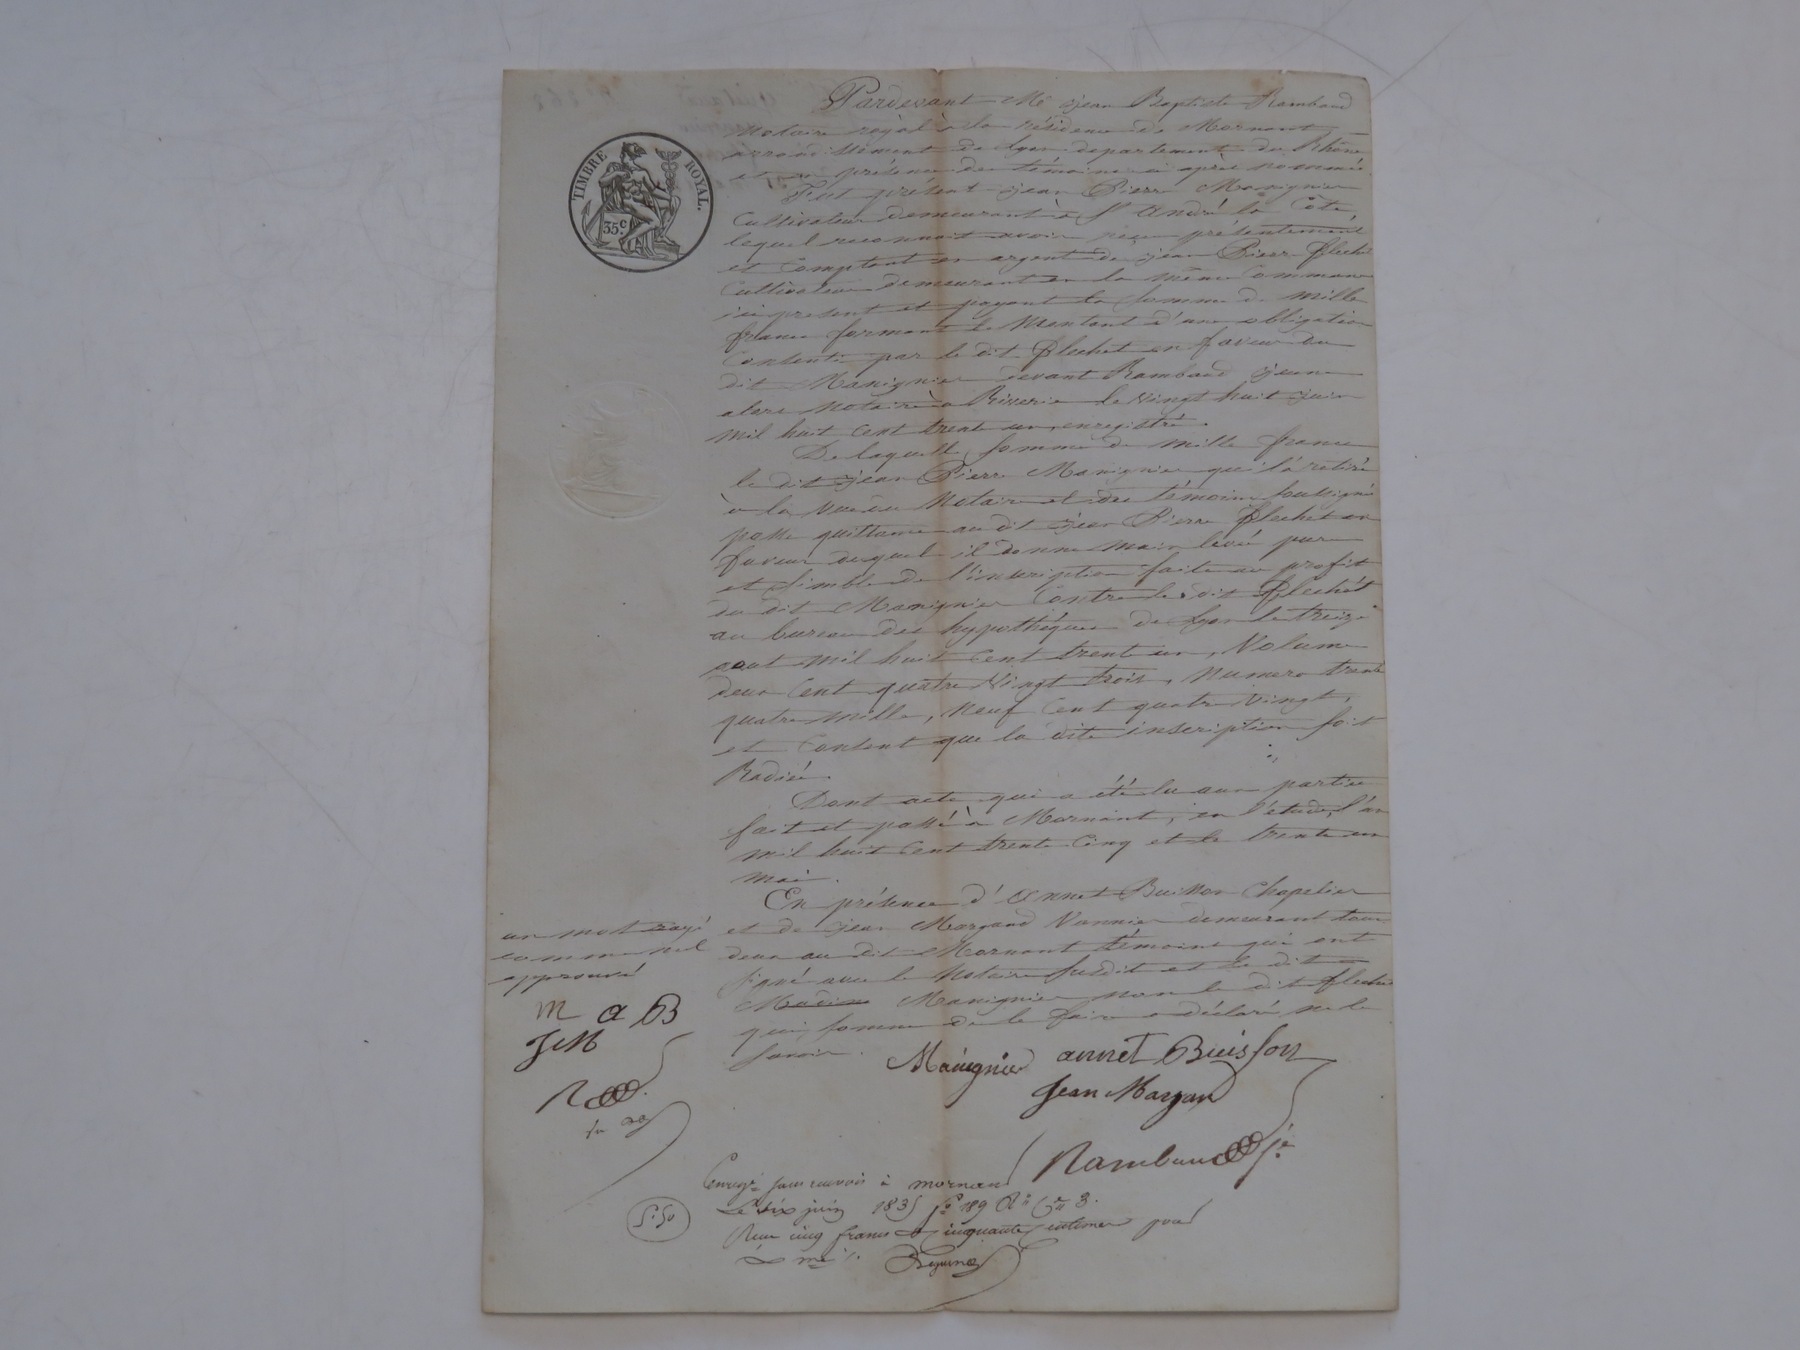 Pardevant Me jean Baptiste Rambaud
Notaire royal à la résidence de Mornant
arrondissement de Lyon departement du Rhône
et en présence des témoins ci après nommés
Fut présent jean Pierre Manignier
Cultivateur demeurant à St André la Côte,
lequel reconnait avoir reçu présentement
et comptant en argent de jean Pierre flechet
Cultivateur demeurant en la même Commune
ici present et payant la somme de mille
francs formant le Montant d'une obligation
Consentie par le dit flechet en faveur du
dit Manignier devant Rambaud jeune
alors Notaire à Riverie le vingt huit juin
mil huit Cent trente un, enregistré.
De laquelle somme de mille francs
le dit jean Pierre Manignier qui l'a retiré
à la vue du Notaire et des témoins soussignés
passe quittance au dit jean Pierre flechet en
faveur duquel il donne main levée pure
et simble de l'inscription faite au profit
du dit Manignier Contre le dit flechet
au bureau des hypothèques de Lyon le treize
aout mil huit Cent trente un, Volume
deux Cent quatre Vingt trois, Numero trente
quatre mille, Neuf Cent quatre Vingt,
et Consent que la dite inscription soit
Radiée.
Dont acte qui a été lu aux parties
fait et passé à Mornant, en l'étude, l'an
mil huit Cent trente Cinq et le trente un
mai.
En présence d'Annet Buisson Chapelier
et de jean Margand Vannier demeurant tous
deux au dit Mornant témoins qui ont
signé avec le Notaire susdit et le dit
Manignier non le dit flechet
qui, somme de le faire a déclaré ne le
savoir.
un mot rayé
comme nul
approuvé
M a B
JM
TIMBRE ROYAL.
35c.
Manignier annet Buisson
Jean Margand
Rambaud je
Enregé sans renvois à mornant
Le six juin 1835 fo 189 Ro Ce 3.
Reçu cinq francs cinquante centimes pour
5.50